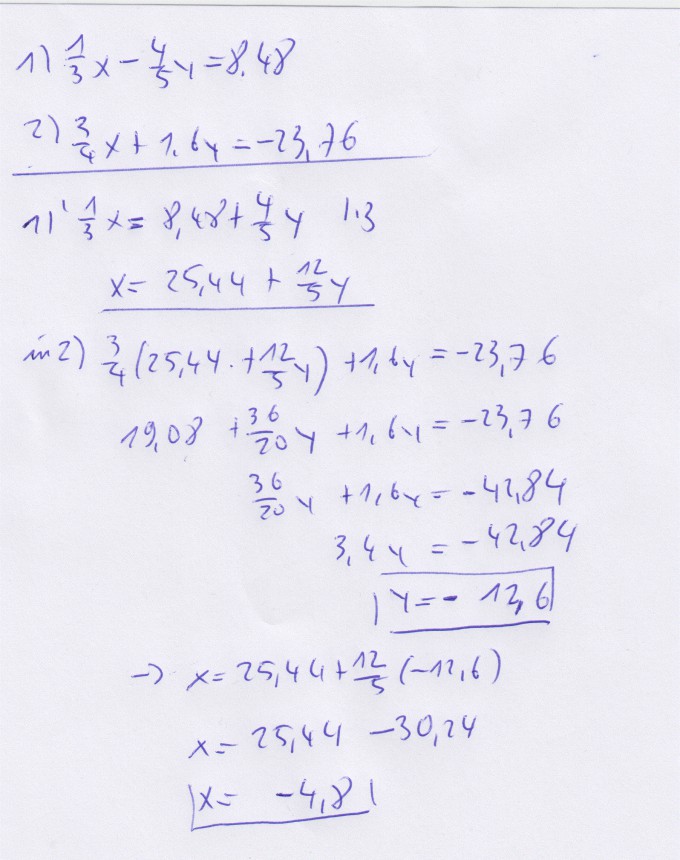 1) 1/3 x - 4/5 y = 8.48
2) 3/4 x + 1.6y = -23,76
1)' 1/3 x = 8,48 + 4/5 y |·3
x = 25,44 + 12/5 y
in 2) 3/4 (25,44 · + 12/5 y) + 1,6y = -23,76
19,08 + 36/20 y + 1,6y = -23,76
36/20 y + 1,6y = -42,84
3,4y = -42,84
y = - 12,6
-> x = 25,44 + 12/5 (-12,6)
x = 25,44 - 30,24
x = -4,8